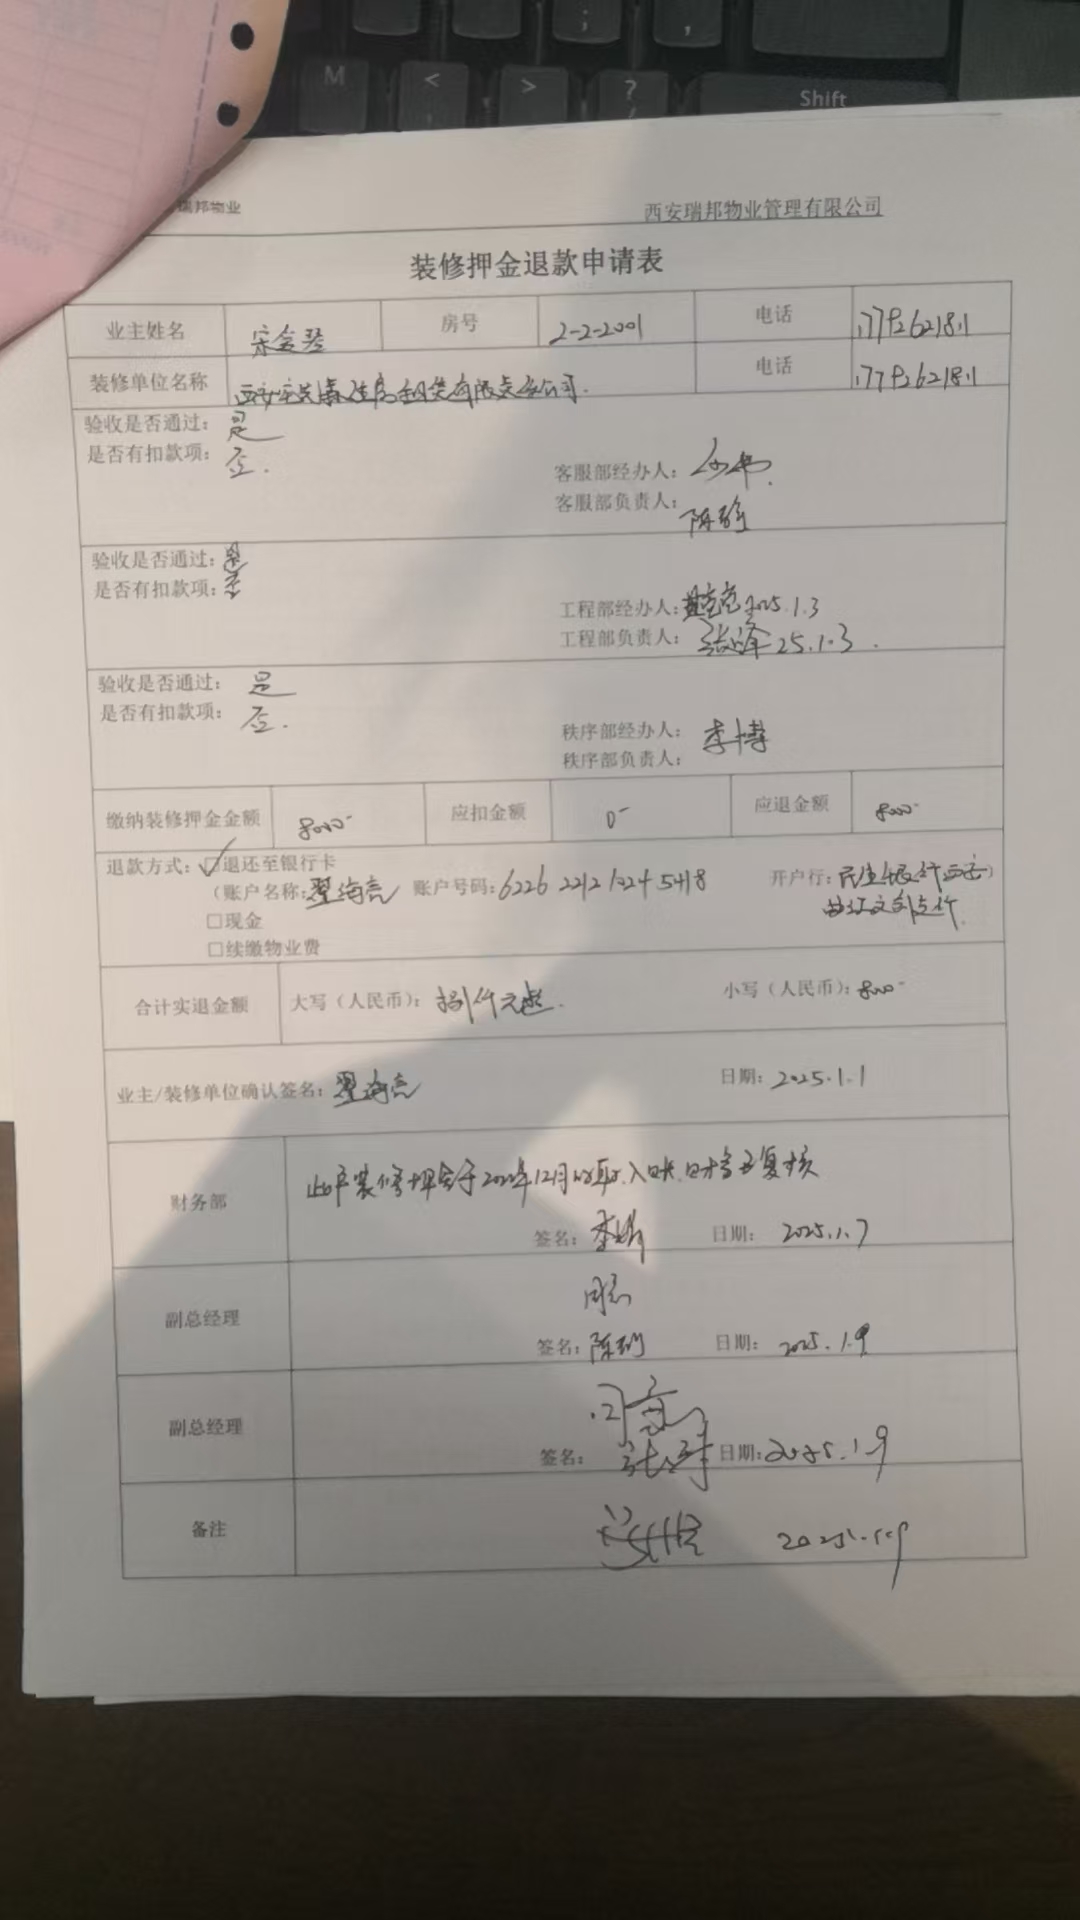 M < > ? ; ,
Shift
瑞邦物业 西安瑞邦物业管理有限公司
装修押金退款申请表
业主姓名 宋会琴 房号 2-2-2001 电话
装修单位名称 电话
验收是否通过: 是
是否有扣款项: 否.
客服部经办人:
客服部负责人: 陈
验收是否通过: 是
是否有扣款项: 否
工程部经办人: 2025.1.3
工程部负责人: 张峰 25.1.3.
验收是否通过: 是
是否有扣款项: 否.
秩序部经办人: 李博
秩序部负责人:
缴纳装修押金金额 8000- 应扣金额 0- 应退金额 8000-
退款方式: ☑退还至银行卡
(账户名称: 翟海亮 账户号码: 6226 2212 1324 5418 开户行: 民生银行西安)
曲江文创支行
□现金
□续缴物业费
合计实退金额 大写(人民币): 捌仟元整. 小写(人民币): 8000-
业主/装修单位确认签名: 翟海亮 日期: 2025.1.1
财务部 此户装修押金于 年12月 入账, 已复核
签名: 李 日期: 2025.1.7
副总经理 同意
签名: 陈 日期: 2025.1.9
副总经理 同意
签名: 张 日期: 2025.1.9
备注 2025.1.9